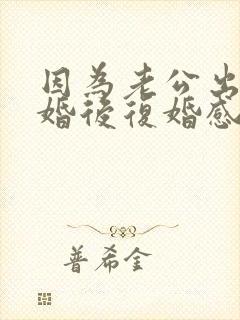 因為老公出
婚後復婚感
普希金